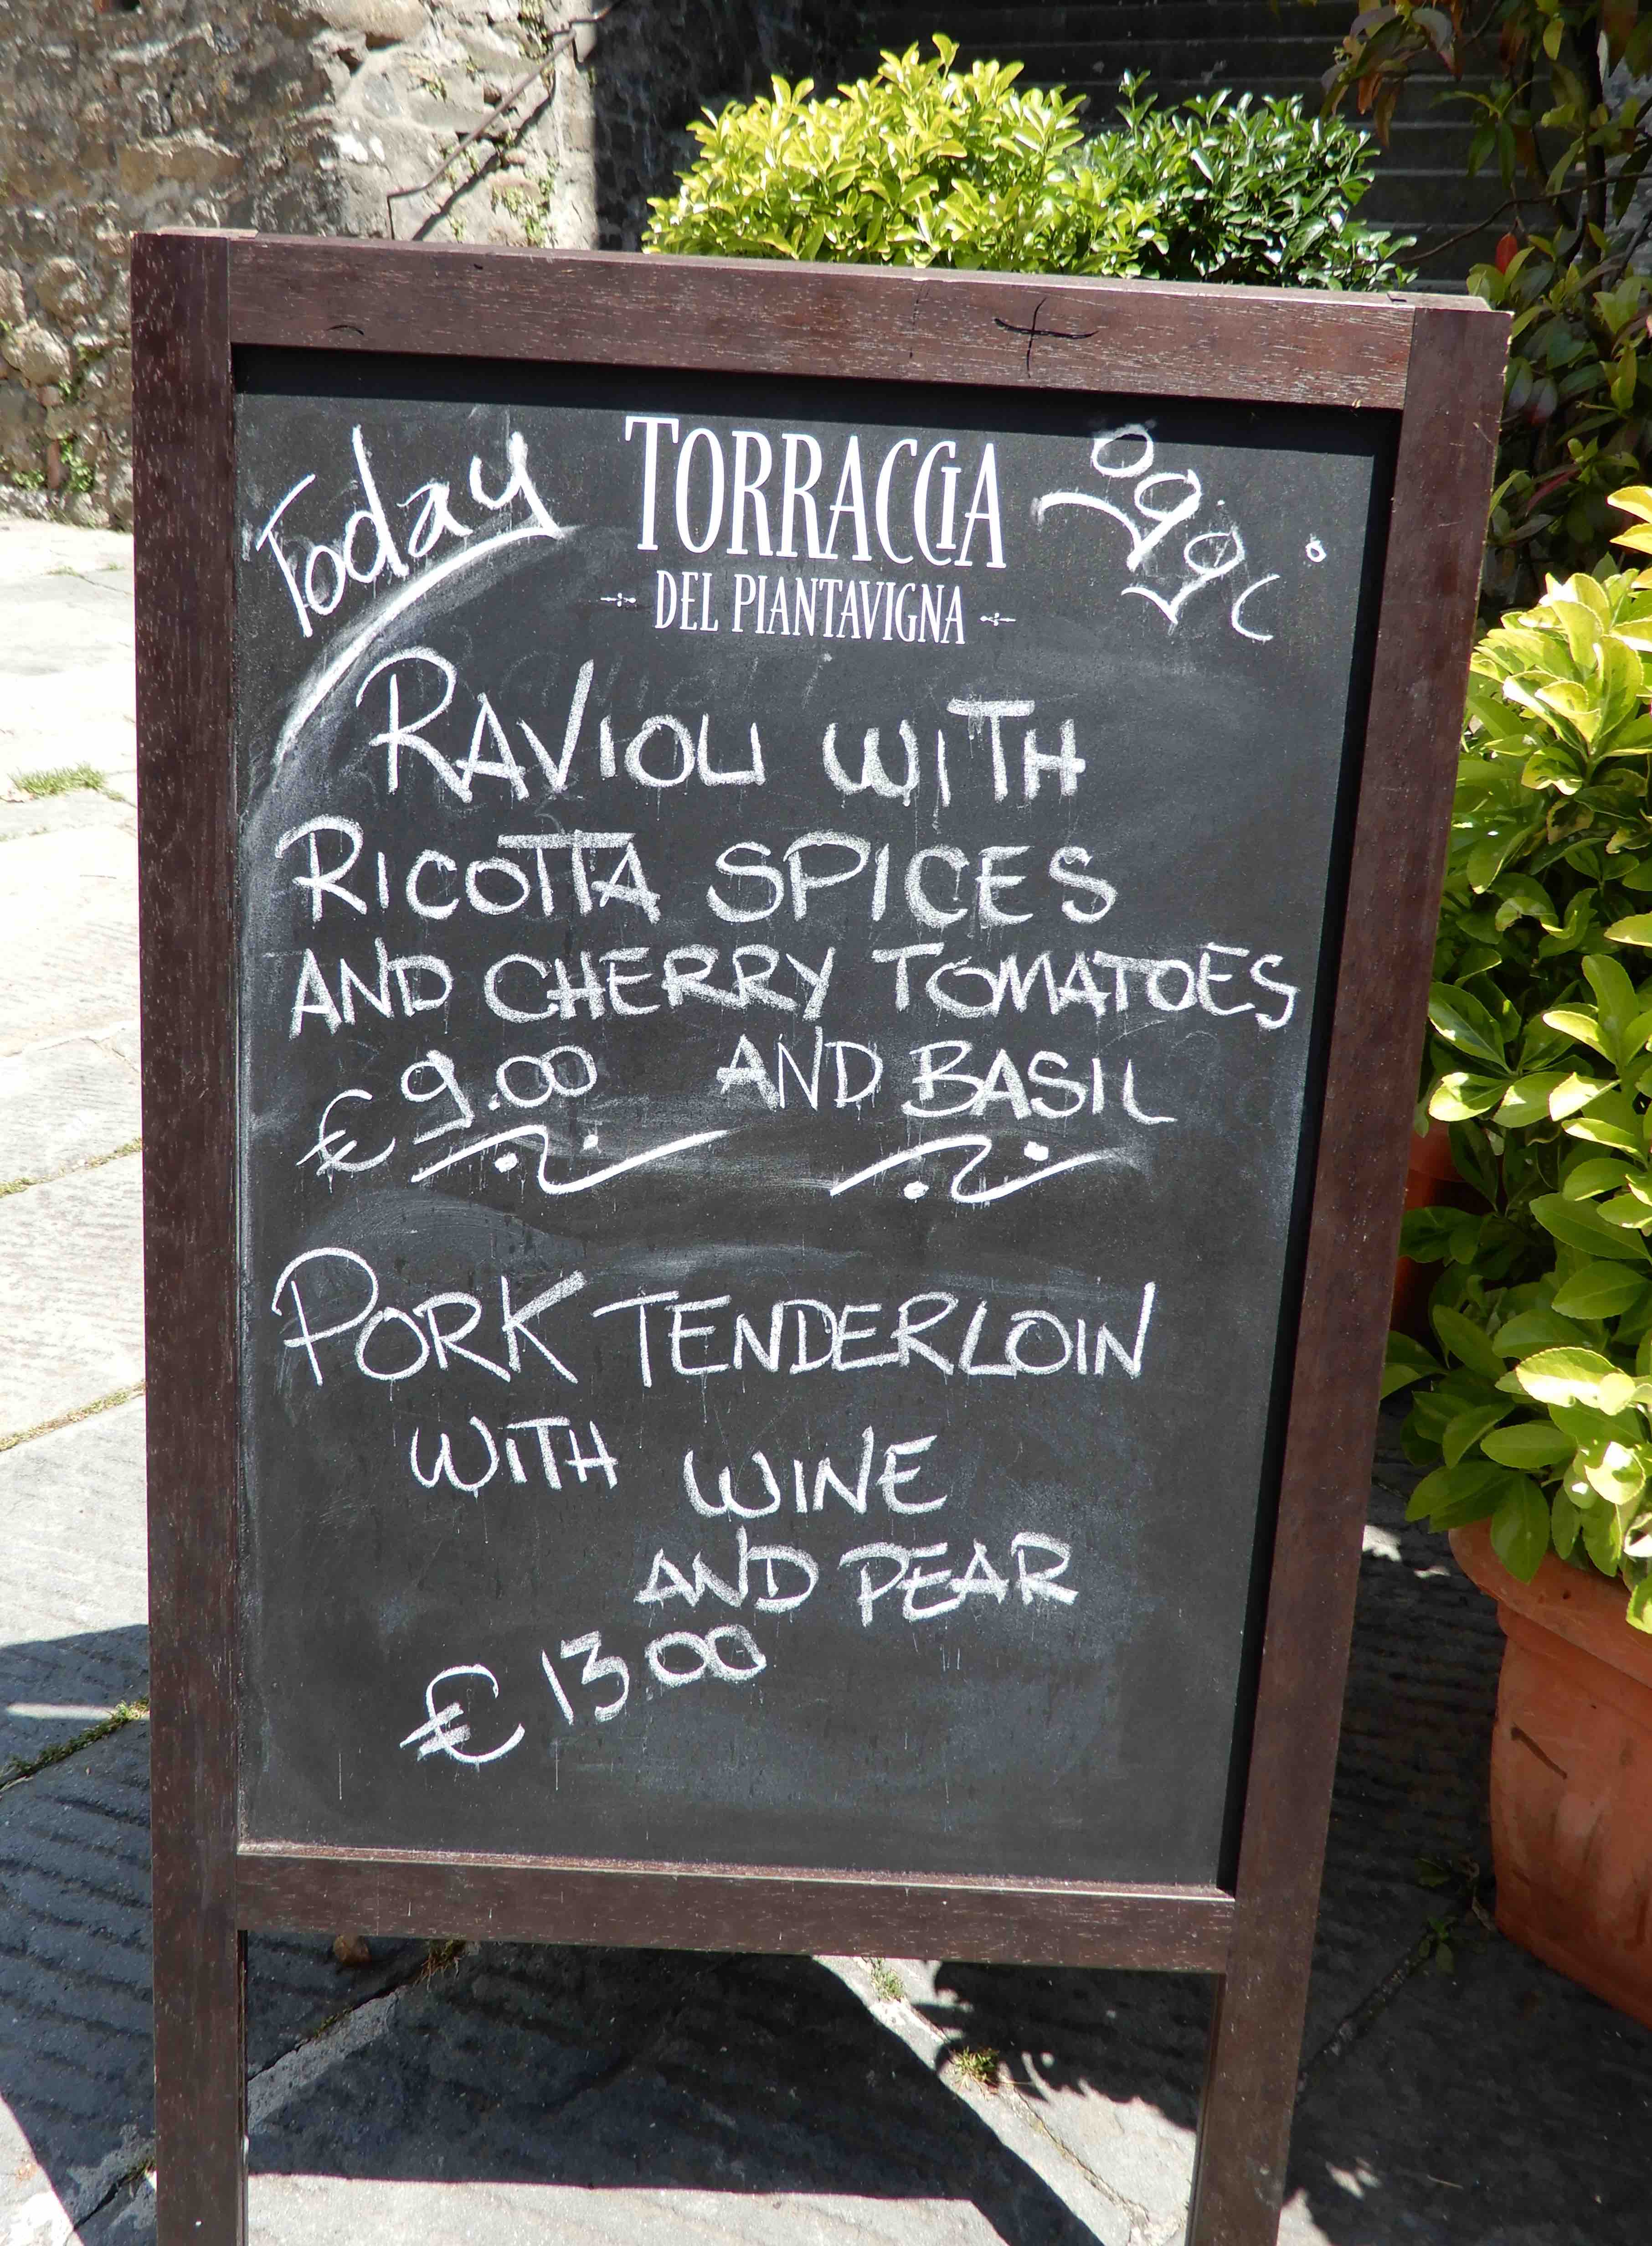 Today
TORRACCIA
oggi
DEL PIANTAVIGNA
RAVIOLI WITH
RICOTTA SPICES
AND CHERRY TOMATOES
€ 9.00 AND BASIL
PORK TENDERLOIN
WITH WINE
AND PEAR
€ 13.00